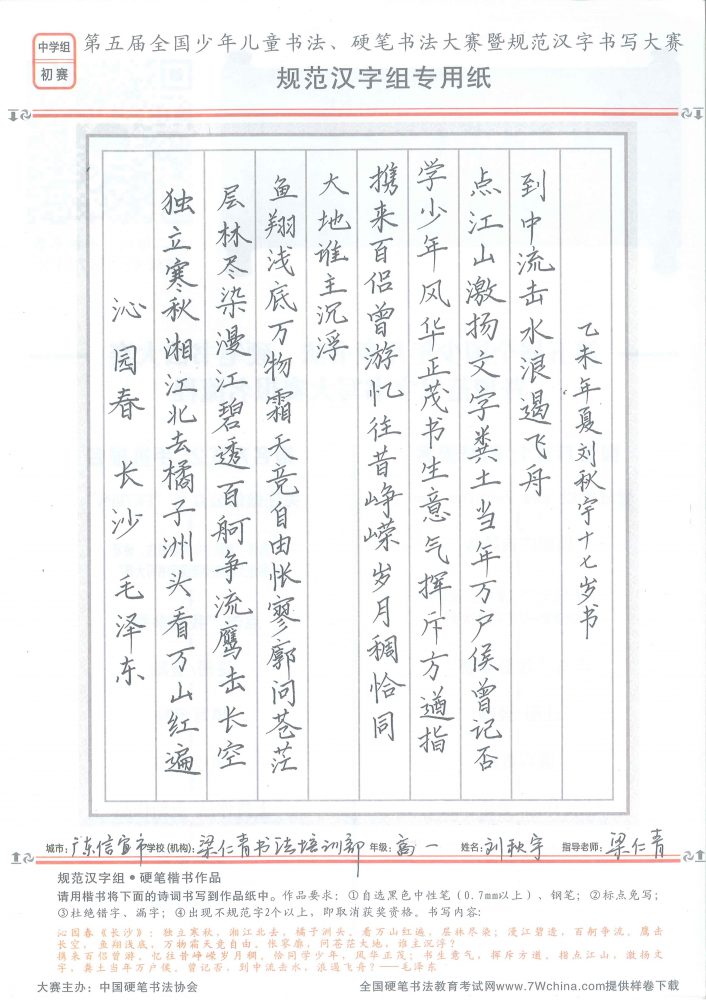 中学组
初赛
第五届全国少年儿童书法、硬笔书法大赛暨规范汉字书写大赛
规范汉字组专用纸
沁园春 长沙 毛泽东
独立寒秋湘江北去橘子洲头看万山红遍
层林尽染漫江碧透百舸争流鹰击长空
鱼翔浅底万物霜天竞自由怅寥廓问苍茫
大地谁主沉浮
携来百侣曾游忆往昔峥嵘岁月稠恰同
学少年风华正茂书生意气挥斥方遒指
点江山激扬文字粪土当年万户侯曾记否
到中流击水浪遏飞舟
乙未年夏刘秋宇十七岁书
城市：广东信宜市 学校(机构)：梁仁青书法培训部 年级：高一 姓名：刘秋宇 指导老师：梁仁青
规范汉字组•硬笔楷书作品
请用楷书将下面的诗词书写到作品纸中。作品要求：①自选黑色中性笔（0.7mm以上）、钢笔；②标点免写；
③杜绝错字、漏字；④出现不规范字2个以上，即取消获奖资格。书写内容：
沁园春《长沙》：独立寒秋，湘江北去，橘子洲头。看万山红遍，层林尽染；漫江碧透，百舸争流。鹰击
长空，鱼翔浅底，万物霜天竞自由。怅寥廓，问苍茫大地，谁主沉浮？
携来百侣曾游，忆往昔峥嵘岁月稠。恰同学少年，风华正茂；书生意气，挥斥方遒。指点江山，激扬文
字，粪土当年万户侯。曾记否，到中流击水，浪遏飞舟？——毛泽东
大赛主办：中国硬笔书法协会
全国硬笔书法教育考试网www.7Wchina.com提供样卷下载